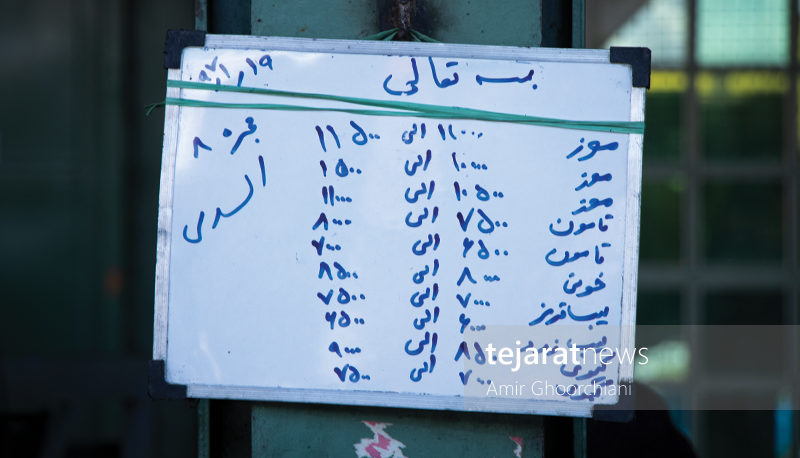 بسمه تعالی
۹۷/۱/۱۹
موز ۱۱۰۰۰ الی ۱۱۵۰۰
موز ۱۰۰۰۰ الی ۱۵۰۰
موز ۱۰۵۰۰ الی ۱۱۰۰۰
تامسون ۷۵۰۰ الی ۸۰۰۰
تامسون ۶۵۰۰ الی ۷۰۰۰
خونی ۸۰۰۰ الی ۸۵۰۰
۷۰۰۰ الی ۷۵۰۰
۶۰۰۰ الی ۶۵۰۰
۸۵ الی ۹۰۰۰
۷۰۰ الی ۷۵۰۰
۸
tejaratnews
Amir Ghoorchiani